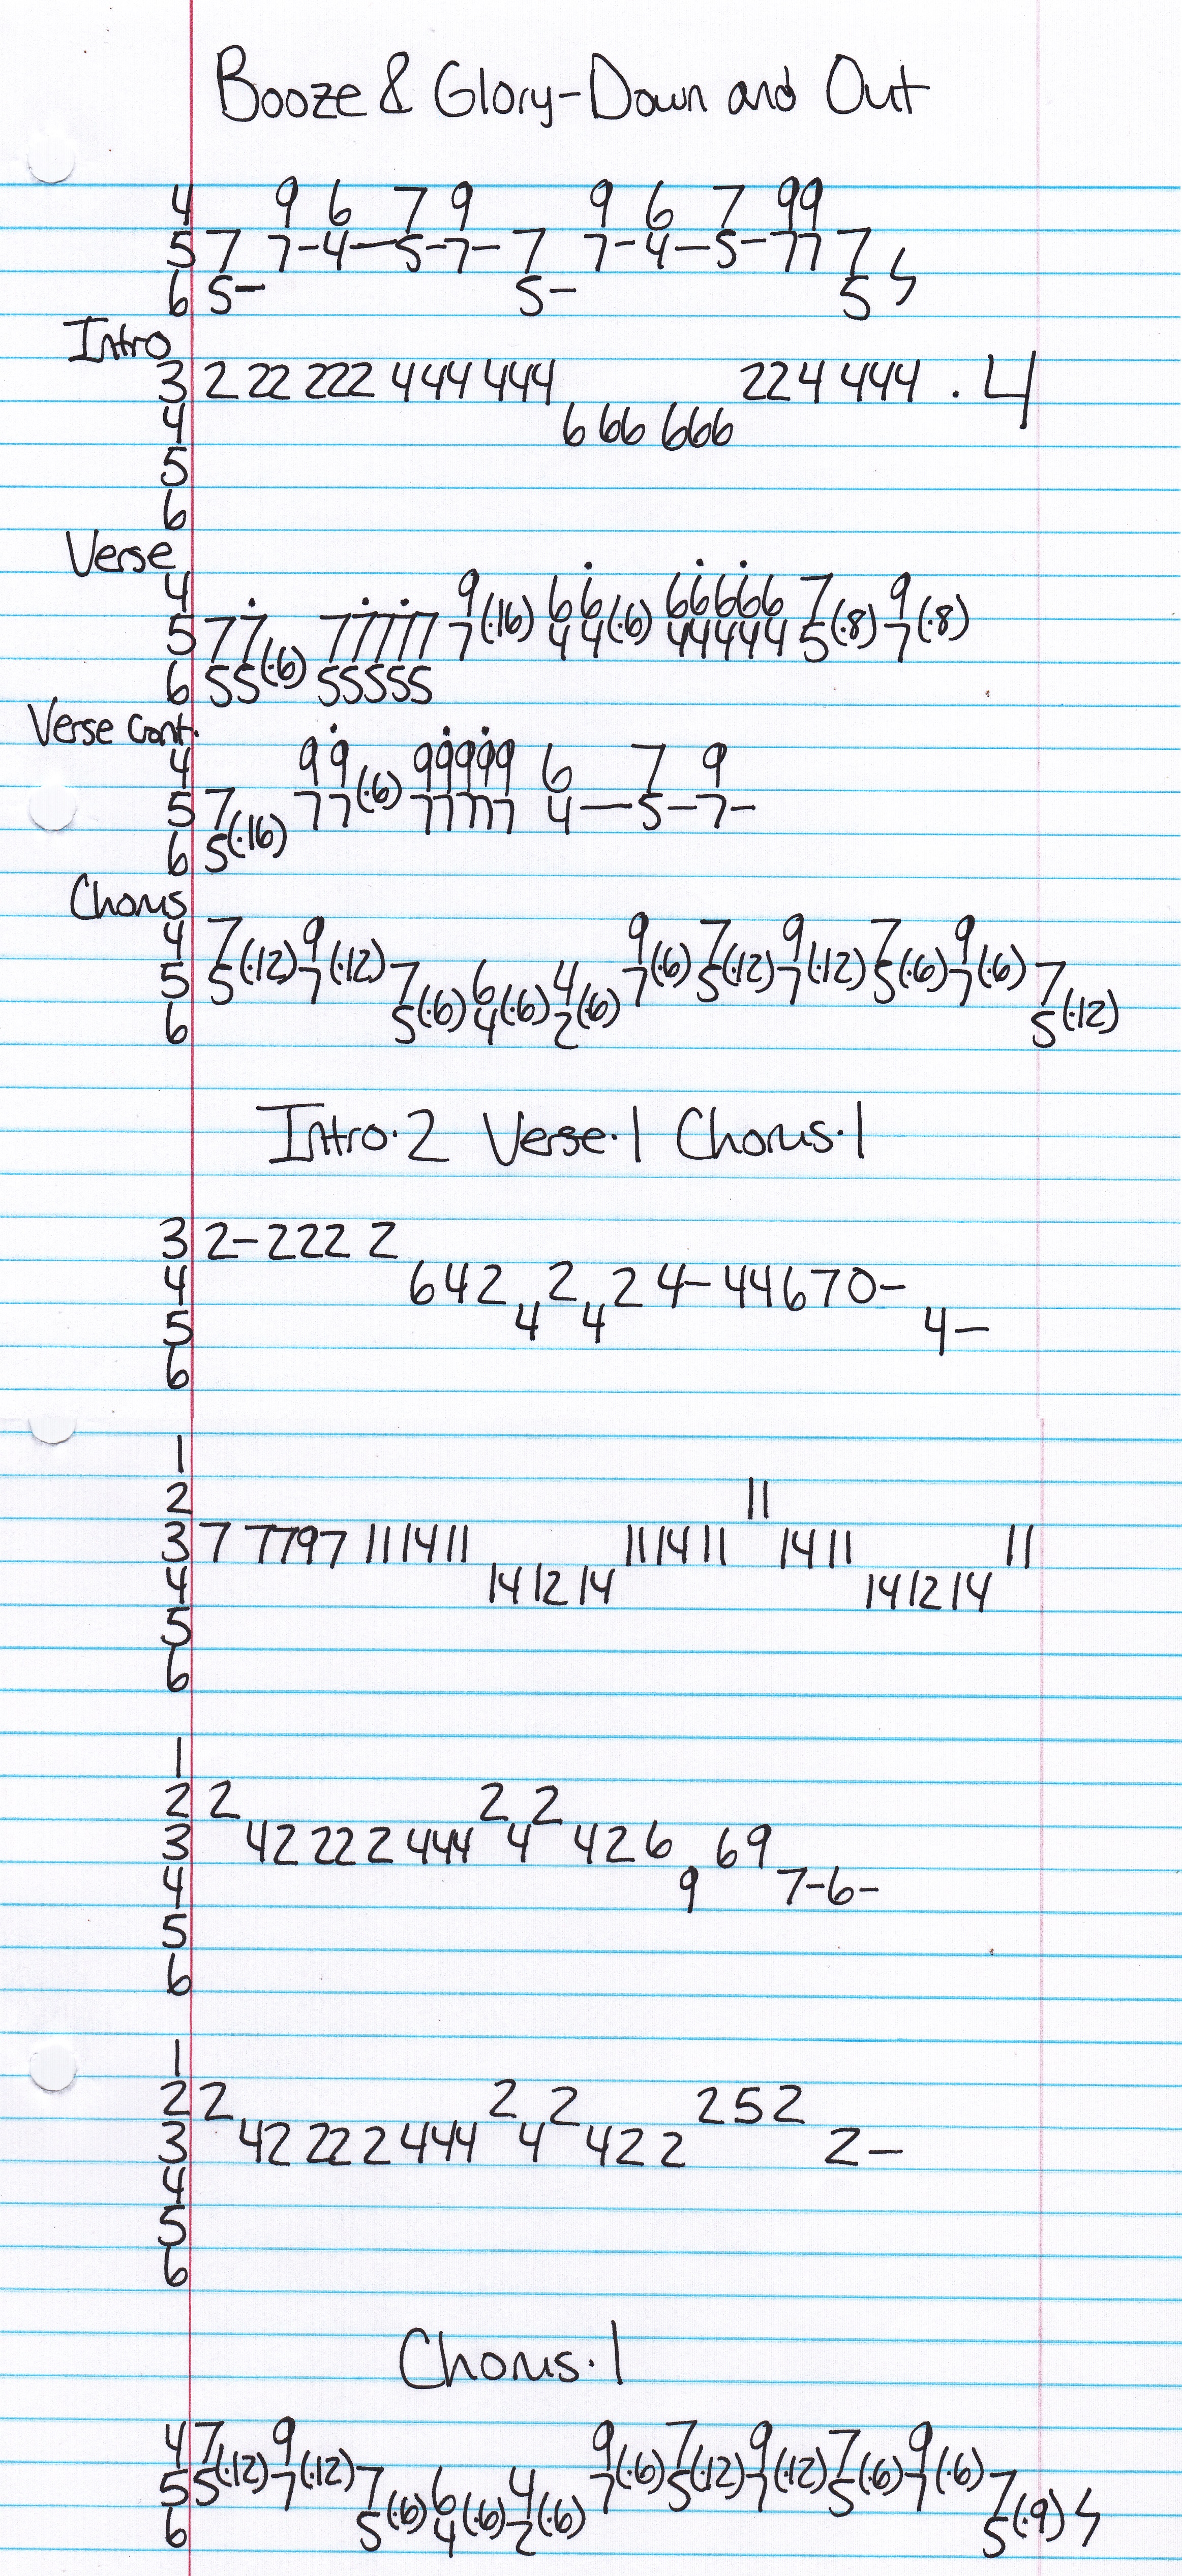 Booze & Glory-Down and Out
4 9 6 7 9 9 6 7 99
5 7 7-4—5-7- 7 7-4—5-77 7
6 5- 5- 5 ϟ
Intro
3 2 22 222 444 444 224 444 · 4
4 6 66 666
5
6
Verse
4 9 (·16) 66 (·6) 66666 7 (·8) 9 (·8)
5 77 77777 7 44 44444 5 7
6 55 (·6) 55555
Verse Cont.
4 99 (·6) 99999 6 7 9
5 7 77 77777 4—5-7-
6 5 (·16)
Chorus
4 7 9 9 7 9 7 9
5 5 (·12) 7 (·12) 7 6 4 7 (·6) 5 (·12) 7 (·12) 5 (·6) 7 (·6) 7
6 5 (·6) 4 (·6) 2 (·6) 5 (·12)
Intro·2 Verse·1 Chorus·1
3 2-222 2
4 642 2 24-44670-
5 4 4 4-
6
1
2 11
3 7 7797 11 14 11 11 14 11 14 11 11
4 14 12 14 14 12 14
5
6
1
2 2 2 2
3 42 222 444 4 426 69
4 9 7-6-
5
6
1
2 2 2 2 252
3 42 222 444 4 422 2-
4
5
6
Chorus·1
4 7 9 9 7 9 7 9
5 5 (·12) 7 (·12) 7 6 4 7 (·6) 5 (·12) 7 (·12) 5 (·6) 7 (·6) 7
6 5 (·6) 4 (·6) 2 (·6) 5 (·9) ϟ